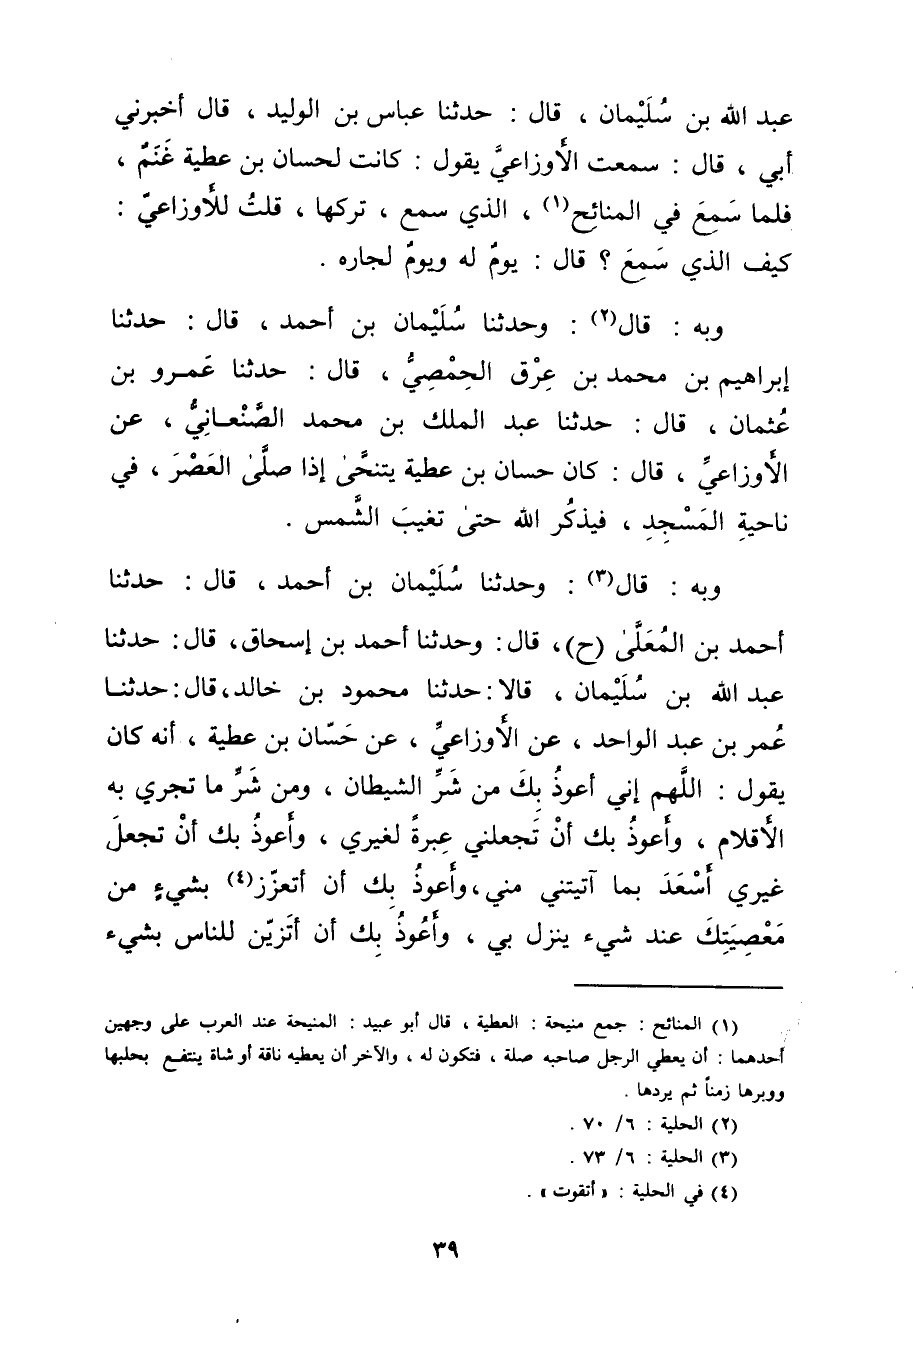 عبد الله بن سُلَيْمان ، قال : حدثنا عباس بن الوليد ، قال أخبرني
أبي ، قال : سمعت الأَوزاعيَّ يقول : كانت لحسان بن عطية غَنَمٌ ،
فلما سَمِعَ في المنائِح(١) ، الذي سمع ، تركها ، قلتُ للأَوزاعيّ :
كيف الذي سَمِعَ ؟ قال : يومٌ له ويومٌ لجاره .
وبه : قال(٢) : وحدثنا سُلَيْمان بن أحمد ، قال : حدثنا
إبراهيم بن محمد بن عِرْق الحِمْصِيُّ ، قال : حدثنا عَمرو بن
عُثمان ، قال : حدثنا عبد الملك بن محمد الصَّنْعانِيُّ ، عن
الأَوزاعيِّ ، قال : كان حسان بن عطية يتنحَّىٰ إذا صلَّىٰ العَصْرَ ، في
ناحيةِ المَسْجِدِ ، فيذكُر الله حتىٰ تغيبَ الشَّمس .
وبه : قال(٣) : وحدثنا سُلَيْمان بن أحمد ، قال : حدثنا
أحمد بن المُعَلَّىٰ (ح)، قال : وحدثنا أحمد بن إسحاق، قال : حدثنا
عبد الله بن سُلَيْمان ، قالا : حدثنا محمود بن خالد، قال : حدثنا
عُمر بن عبد الواحد ، عن الأَوزاعيِّ ، عن حَسّان بن عطية ، أنه كان
يقول : اللَّهم إني أعوذُ بِكَ من شَرِّ الشيطان ، ومن شَرِّ ما تجري به
الأَقلام ، وأَعوذُ بك أنْ تَجعلني عِبرةً لغيري ، وأَعوذُ بك أنْ تجعلَ
غيري أَسْعَدَ بما آتيتني مني، وأَعوذُ بِك أن أتعزّز(٤) بشيءٍ من
مَعْصِيَتِكَ عند شيء ينزل بي ، وأَعُوذُ بِك أن أتَزيّن للناس بشيء
(١) المنائح : جمع منيحة : العطية ، قال أبو عبيد : المنيحة عند العرب على وجهين
أحدهما : أن يعطي الرجل صاحبه صلة ، فتكون له ، والآخر أن يعطيه ناقة أو شاة ينتفع بحلبها
ووبرها زمناً ثم يردها .
(٢) الحلية : ٦/ ٧٠ .
(٣) الحلية : ٦/ ٧٣ .
(٤) في الحلية : « أتقوت » .
٣٩